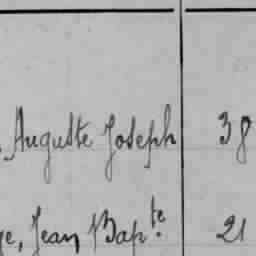 , Auguste Joseph 38
ge, Jean Bapte. 21